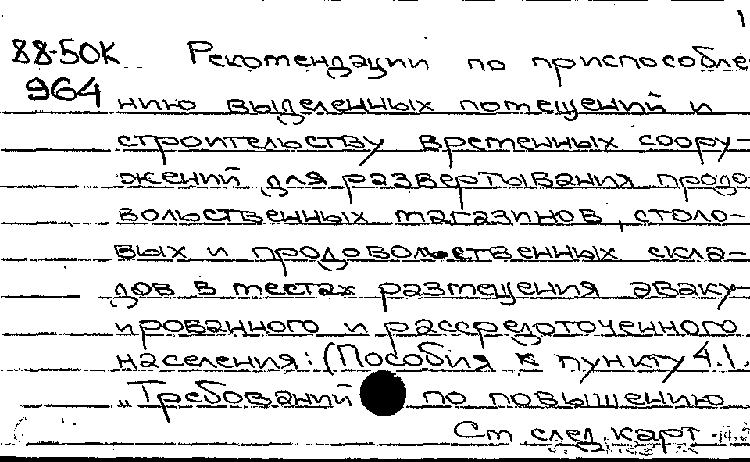 1
88-50К Рекомендации по приспособле
964 нию выделенных помещений и
строительству временных соору-
жений для развертывания продо
вольственных магазинов, столо-
вых и продовольственных скла-
дов в местах размещения эваку-
ированного и рассредоточенного
населения: (Пособия к пункту 4.1.
„Требований по повышению
См след. карт.